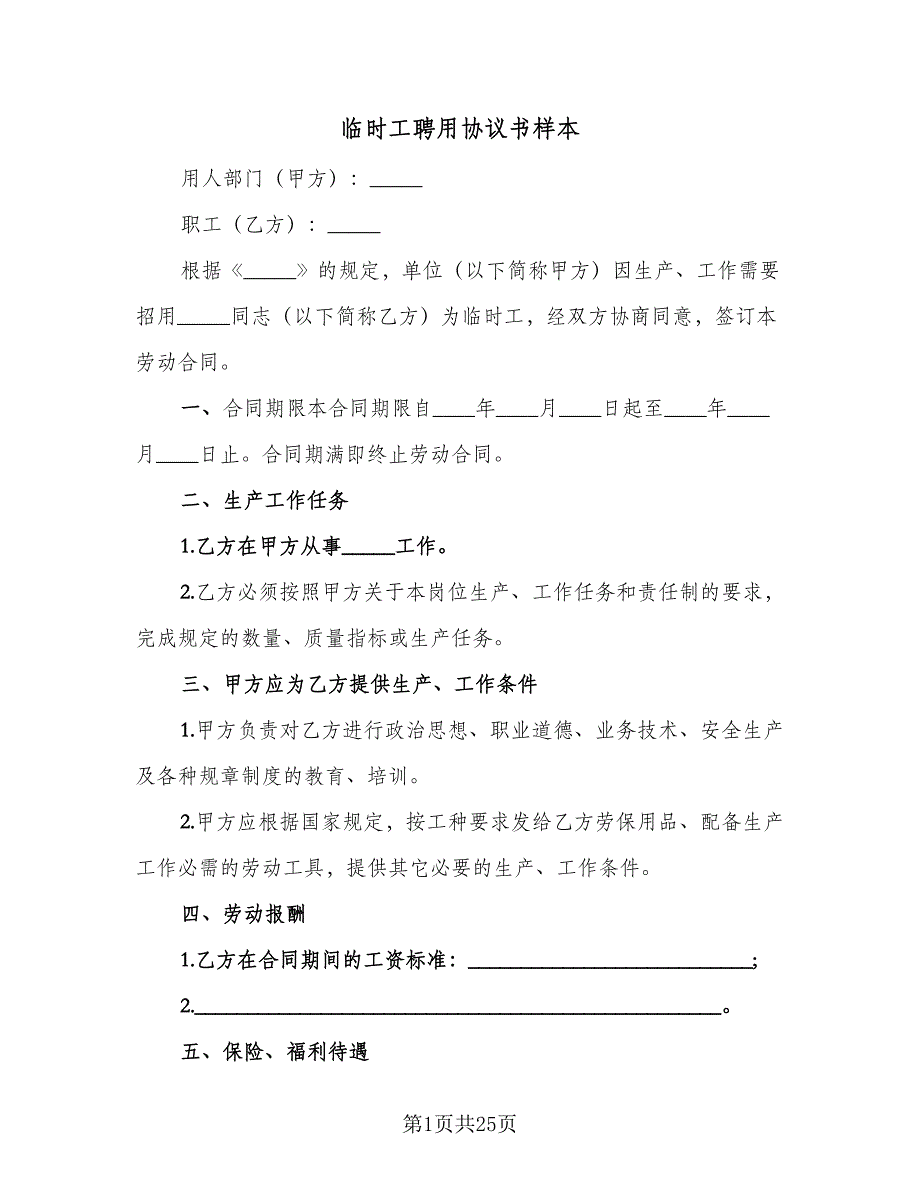 临时工聘用协议书样本
用人部门（甲方）：_____
职工（乙方）：_____
根据《_____》的规定，单位（以下简称甲方）因生产、工作需要
招用_____同志（以下简称乙方）为临时工，经双方协商同意，签订本
劳动合同。
一、合同期限本合同期限自____年____月____日起至____年____
月____日止。合同期满即终止劳动合同。
二、生产工作任务
1.乙方在甲方从事_____工作。
2.乙方必须按照甲方关于本岗位生产、工作任务和责任制的要求，
完成规定的数量、质量指标或生产任务。
三、甲方应为乙方提供生产、工作条件
1.甲方负责对乙方进行政治思想、职业道德、业务技术、安全生产
及各种规章制度的教育、培训。
2.甲方应根据国家规定，按工种要求发给乙方劳保用品、配备生产
工作必需的劳动工具，提供其它必要的生产、工作条件。
四、劳动报酬
1.乙方在合同期间的工资标准：___________________________;
2.__________________________________________________。
五、保险、福利待遇
第1页共25页